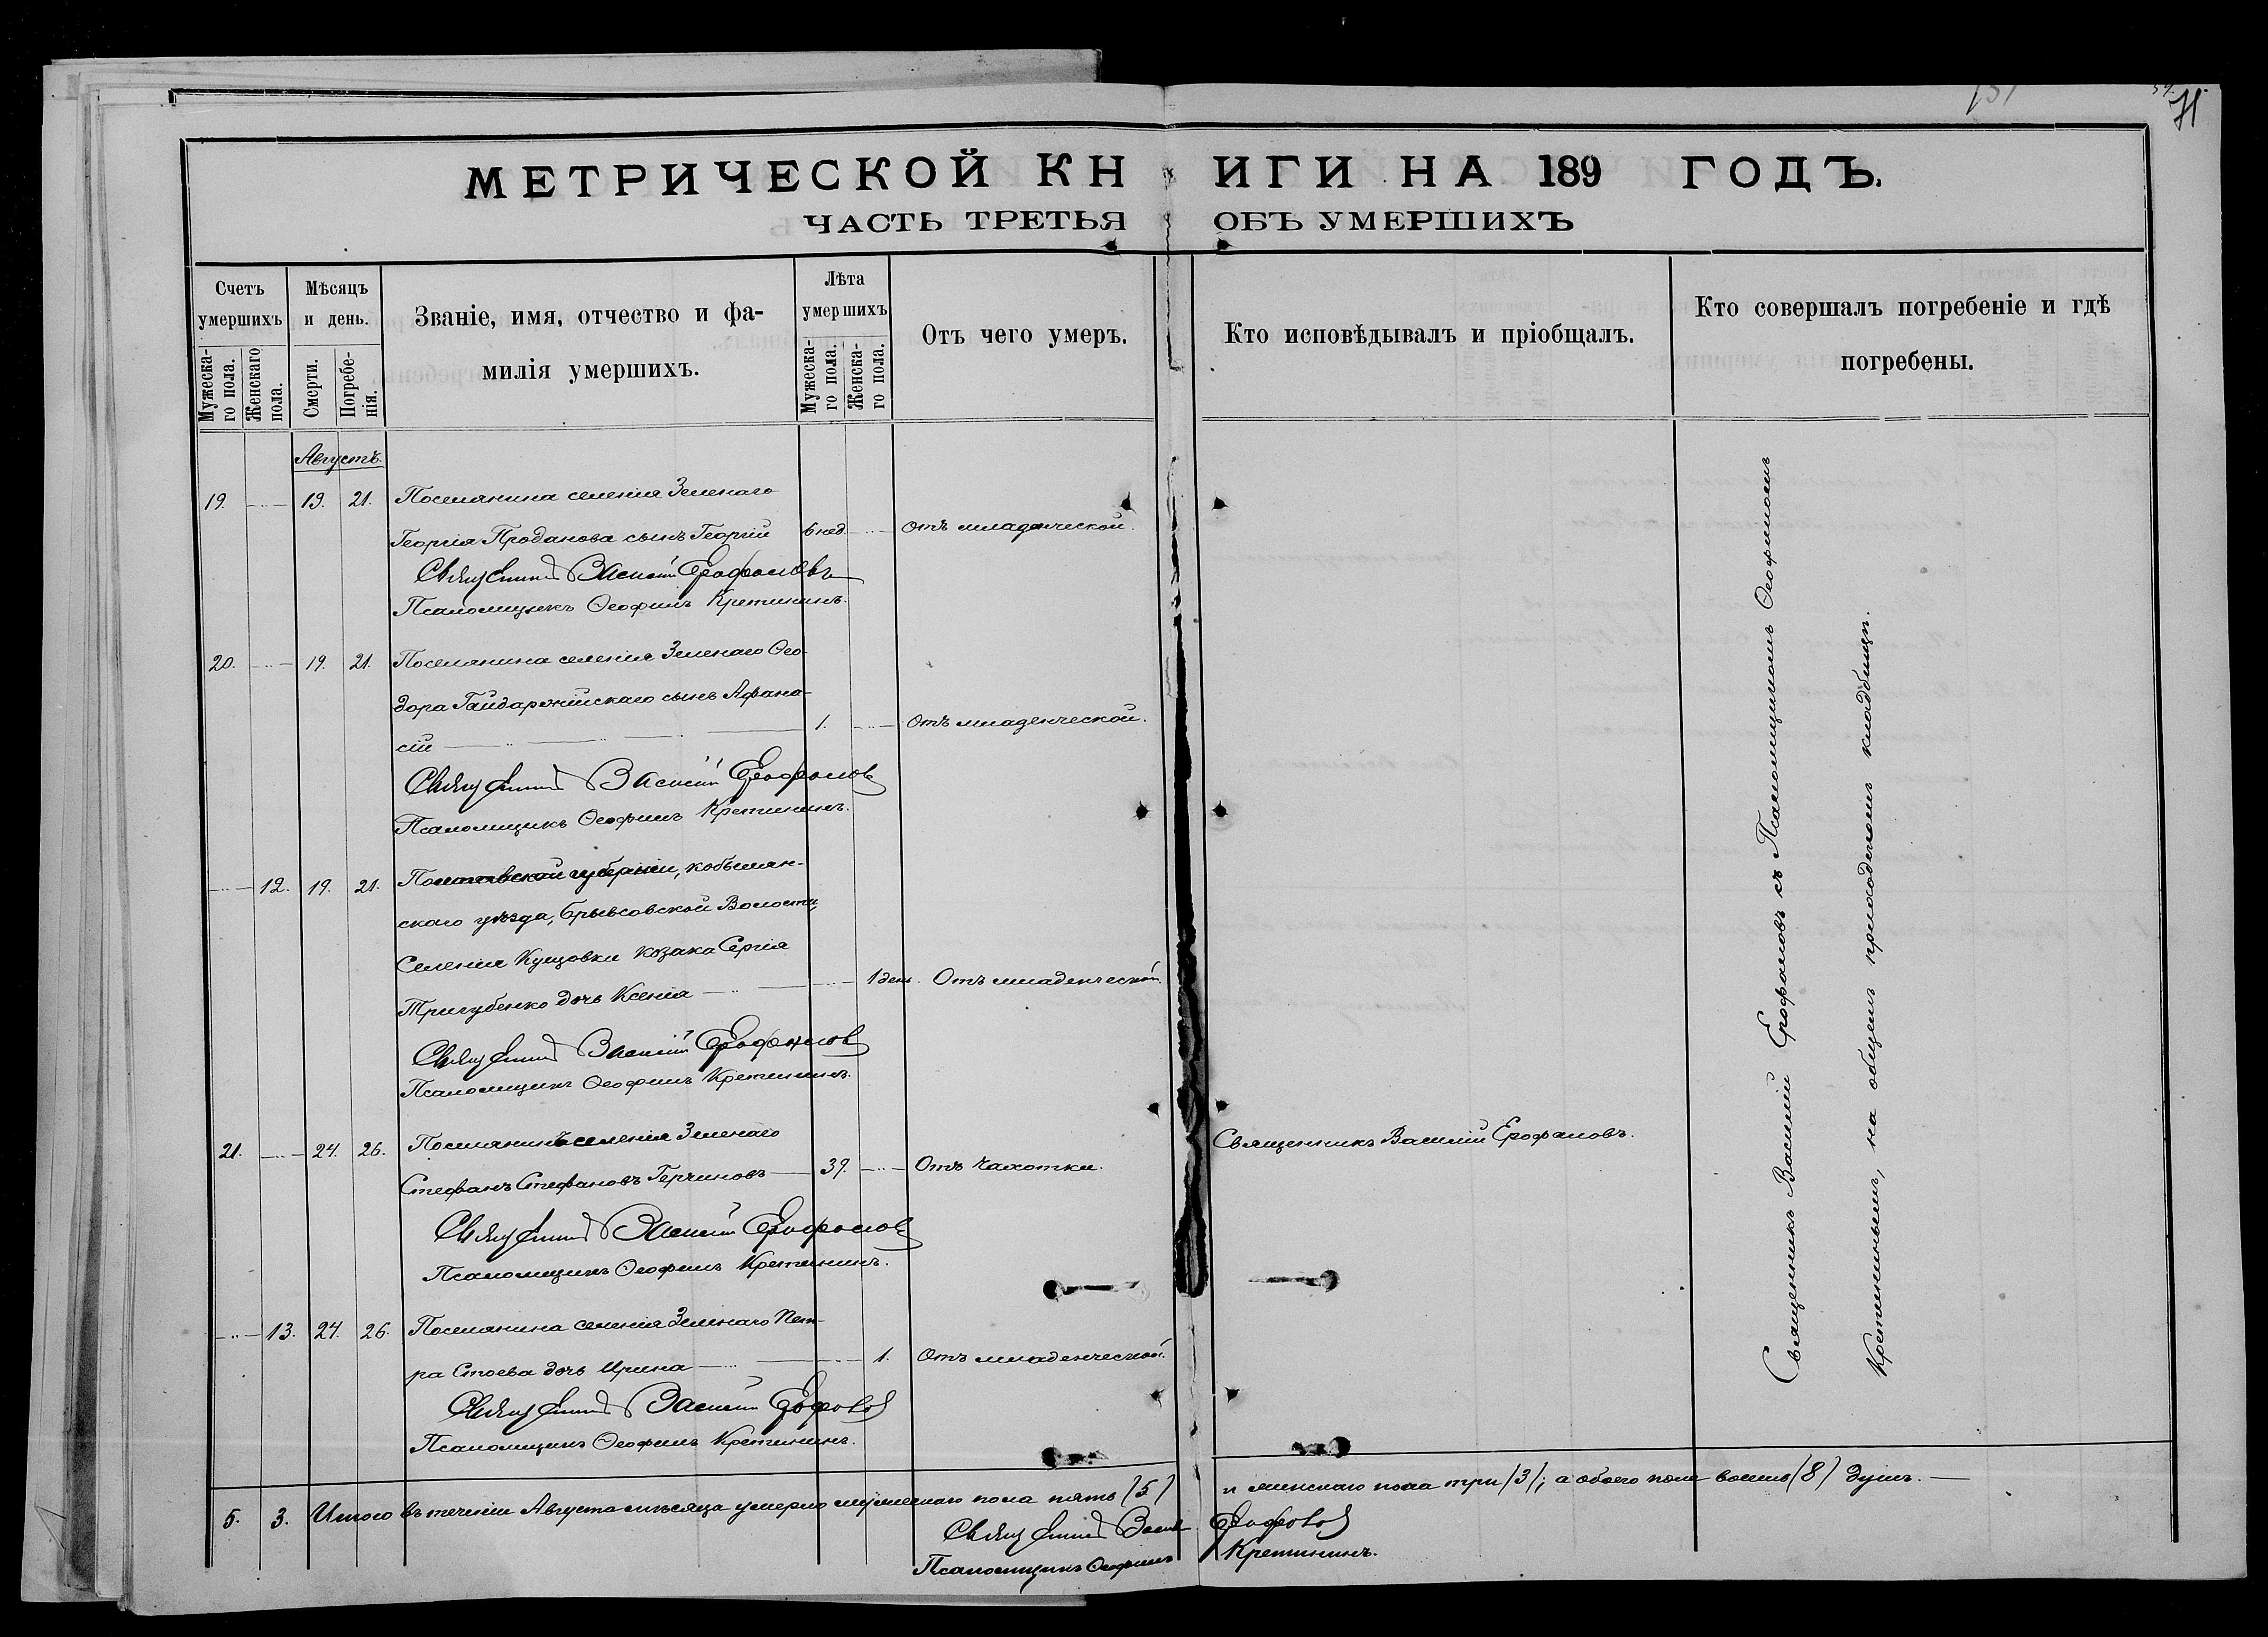 71
МЕТРИЧЕСКОЙ КНИГИ НА 189 ГОДЪ.
ЧАСТЬ ТРЕТЬЯ ОБЪ УМЕРШИХЪ
Счетъ умершихъ
Мужеска-го пола.
Женскаго пола.
Мѣсяцъ и день.
Смерти.
Погребе-нія.
Званіе, имя, отчество и фа-
милія умершихъ.
Лѣта умершихъ
Мужеска-го пола.
Женска-го пола.
Отъ чего умеръ.
Кто исповѣдывалъ и пріобщалъ.
Кто совершалъ погребеніе и гдѣ
погребены.
Августъ.
19. 19. 21. Поселянина селенія Зеленаго
Георгія Проданова сынъ Георгій 6 нед. Отъ младенческой.
Священникъ Василій Ерофаловъ
Псаломщикъ Ѳеофилъ Кретининъ.
20. 19. 21. Поселянина селенія Зеленаго Ѳео-
дора Гайдаржійскаго сынъ Афана-
сій 1. Отъ младенческой.
Священникъ Василій Ерофаловъ
Псаломщикъ Ѳеофилъ Кретининъ.
12. 19. 21. Полтавской губерніи, кобылян-
скаго уѣзда, Волости,
Селенія Кущовки козака Сергія
Тригубенко дочь Ксенія 1 день. Отъ младенческой.
Священникъ Василій Ерофаловъ
Псаломщикъ Ѳеофилъ Кретининъ.
21. 24. 26. Поселянинъ селенія Зеленаго
Стефанъ Стефановъ Герчиновъ 39. Отъ Чахотки. Священникъ Василій Ерофаловъ.
Священникъ Василій Ерофаловъ
Псаломщикъ Ѳеофилъ Кретининъ.
13. 24. 26. Поселянина селенія Зеленаго Пет-
ра Стоева дочь Ирина 1. Отъ младенческой.
Священникъ Василій Ерофаловъ
Псаломщикъ Ѳеофилъ Кретининъ.
Священникъ Василій Ерофаловъ съ Псаломщикомъ Ѳеофиломъ
Кретининымъ, на общемъ приходскомъ кладбищѣ.
5. 3. Итого въ теченіи Августа мѣсяца умерло мужескаго пола пять (5) и женскаго пола три (3); а обоего пола восемь (8) душъ.
Священникъ Василій Ерофаловъ
Псаломщикъ Ѳеофилъ Кретининъ.